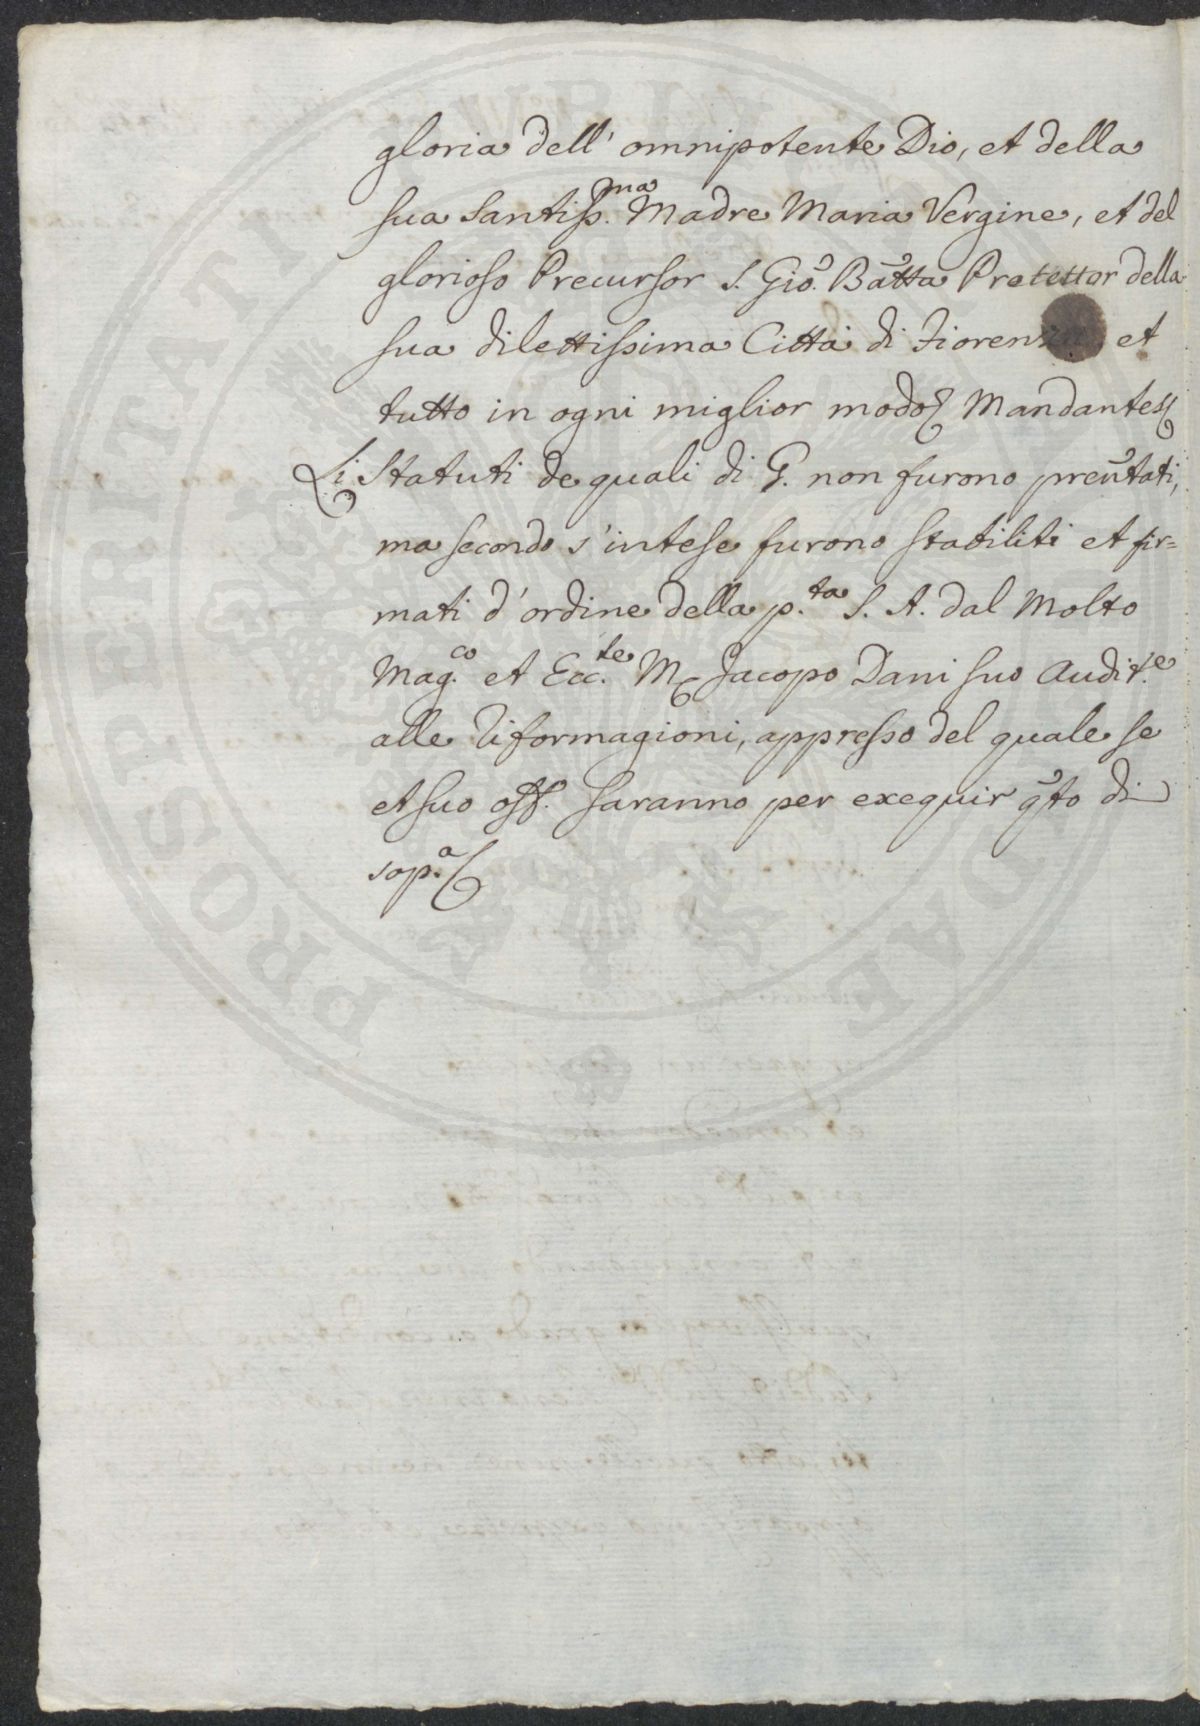 gloria dell' omnipotente Dio, et della
sua Santiss.ma Madre Maria Vergine, et del
glorioso Precursor S. Gio. Batta Protettor della
sua dilettissima Città di Fiorenza et
tutto in ogni miglior modo Mandantes
Li Statuti de quali di S. non furono preñtati,
ma secondo s'intese furono stabiliti et fir=
mati d'ordine della p.ta S. A. dal Molto
Mag.co et Ecc.te M Jacopo Dani suo Audit.e
alle Riformagioni, appresso del quale se
et suo off. saranno per exequir q̃to di
sop.a
PROSPERITATI PUBLICAE